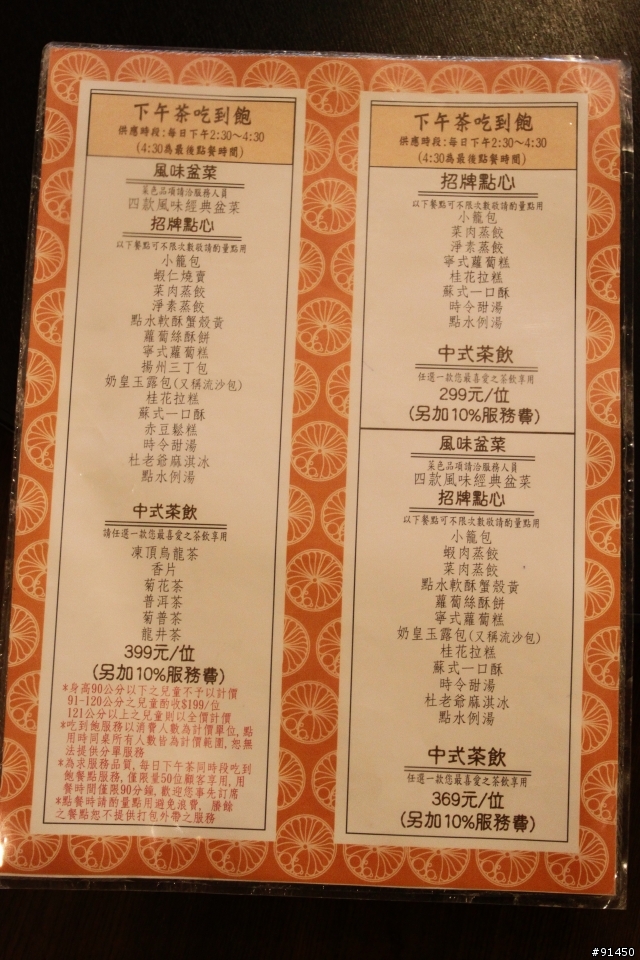 下午茶吃到飽
供應時段:每日下午2:30~4:30
(4:30為最後點餐時間)
風味盆菜
菜色品項請洽服務人員
四款風味經典盆菜
招牌點心
以下餐點可不限次數敬請酌量點用
小籠包
蝦仁燒賣
菜肉蒸餃
淨素蒸餃
點水軟酥蟹殼黃
蘿蔔絲酥餅
寧式蘿蔔糕
揚州三丁包
奶皇玉露包(又稱流沙包)
桂花拉糕
蘇式一口酥
赤豆鬆糕
時令甜湯
杜老爺麻淇冰
點水例湯
中式茶飲
請任選一款您最喜愛之茶飲享用
凍頂烏龍茶
香片
菊花茶
普洱茶
菊普茶
龍井茶
399元/位
(另加10%服務費)
*身高90公分以下之兒童不予以計價
91-120公分之兒童酌收$199/位
121公分以上之兒童則以全價計價
*吃到飽服務以消費人數為計價單位,點
用時同桌所有人數皆為計價範圍,恕無
法提供分單服務
*為求服務品質,每日下午茶同時段吃到
飽餐點服務,僅限量50位顧客享用,用
餐時間僅限90分鐘,歡迎您事先訂席
*點餐時請酌量點用避免浪費, 賸餘
之餐點恕不提供打包外帶之服務
下午茶吃到飽
供應時段:每日下午2:30~4:30
(4:30為最後點餐時間)
招牌點心
以下餐點可不限次數敬請酌量點用
小籠包
菜肉蒸餃
淨素蒸餃
寧式蘿蔔糕
桂花拉糕
蘇式一口酥
時令甜湯
點水例湯
中式茶飲
任選一款您最喜愛之茶飲享用
299元/位
(另加10%服務費)
風味盆菜
菜色品項請洽服務人員
四款風味經典盆菜
招牌點心
以下餐點可不限次數敬請酌量點用
小籠包
蝦肉蒸餃
菜肉蒸餃
點水軟酥蟹殼黃
蘿蔔絲酥餅
寧式蘿蔔糕
奶皇玉露包(又稱流沙包)
桂花拉糕
蘇式一口酥
時令甜湯
杜老爺麻淇冰
點水例湯
中式茶飲
任選一款您最喜愛之茶飲享用
369元/位
(另加10%服務費)
#91450